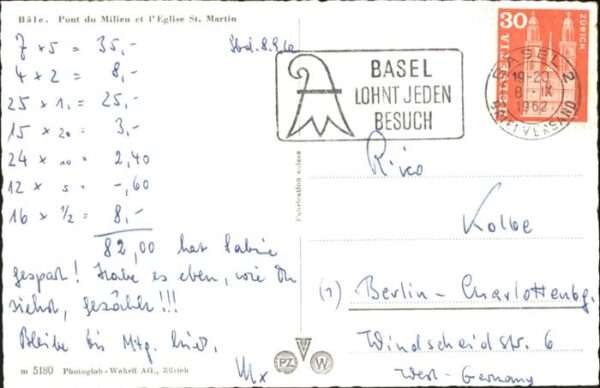 Bâle. Pont du Milieu et l'Eglise St. Martin
7 x 5 = 35,-
4 x 2 = 8,-
25 x 1.- = 25,-
15 x 20 = 3,-
24 x 10 = 2,40
12 x 5 = -,60
16 x 1/2 = 8,-
82,00 hat Sabine
gespart! Habe es eben, wie Du
siehst, gezählt!!!
Bleibe bis Mitg. hier.
m 5180 Photoglob-Wehrli AG., Zürich
8.9.62
BASEL
LOHNT JEDEN
BESUCH
30
HELVETIA
ZÜRICH
BASEL 2
19-20
8. IX
1962
BRIEFVERSAND
Fabrication suisse
PZ
W
Rico
Kolbe
(1) Berlin-Charlottenbg.
Windscheidstr. 6
West-Germany